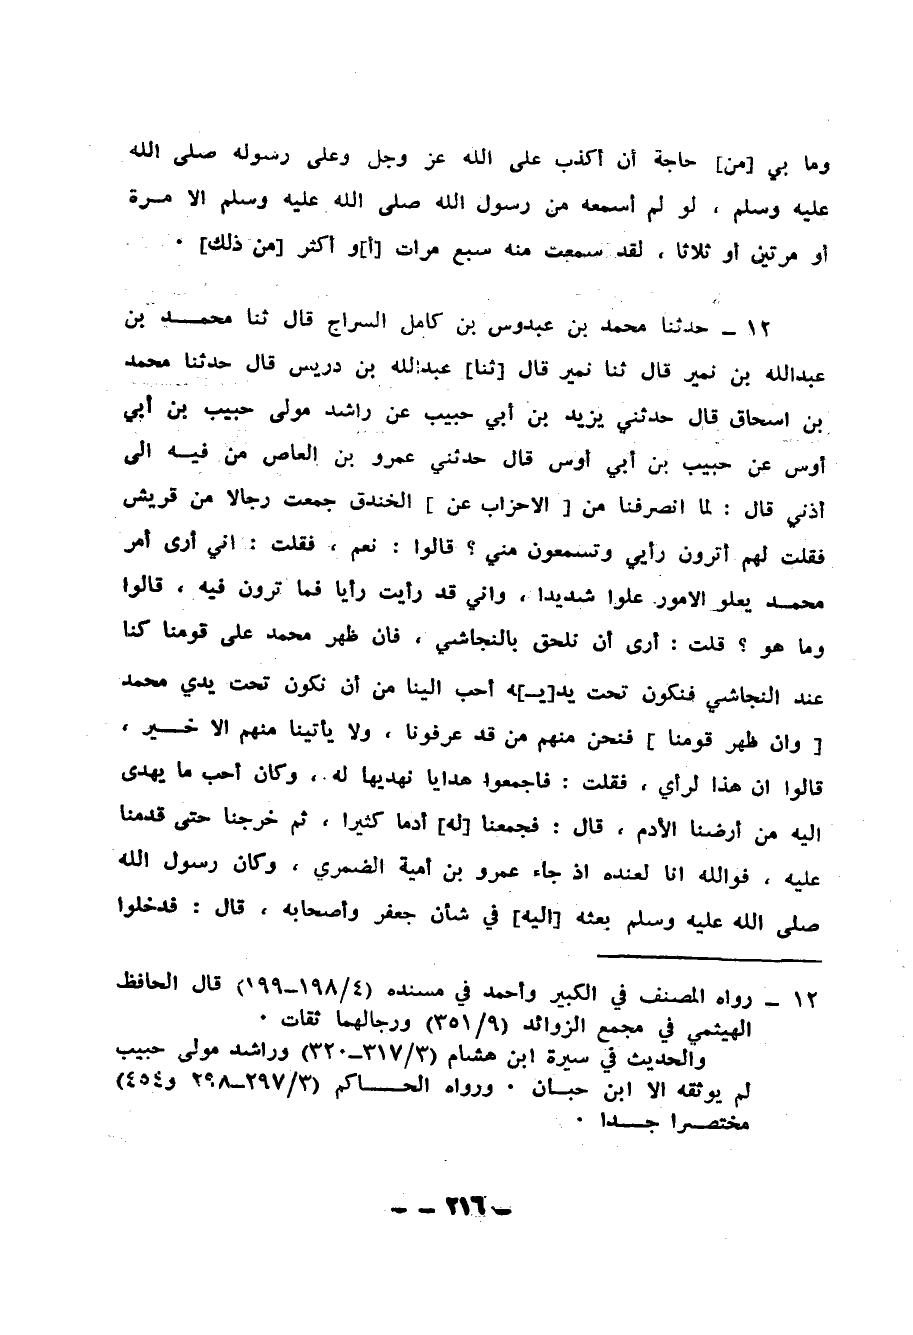 وما بي [من] حاجة أن أكذب على الله عز وجل وعلى رسوله صلى الله
عليه وسلم ، لو لم أسمعه من رسول الله صلى الله عليه وسلم الا مـرة
أو مرتين أو ثلاثا ، لقد سمعت منه سبع مرات [أ]و أكثر [من ذلك] ٠
١٢ ـ حدثنا محمد بن عبدوس بن كامل السراج قال ثنا محمـــد بن
عبدالله بن نمير قال ثنا نمير قال [ثنا] عبدالله بن دريس قال حدثنا محمد
بن اسحاق قال حدثني يزيد بن أبي حبيب عن راشد مولى حبيب بن أبي
أوس عن حبيب بن أبي أوس قال حدثني عمرو بن العاص من فيــه الى
أذني قال : لما انصرفنا من [ الاحزاب عن ] الخندق جمعت رجالا من قريش
فقلت لهم أترون رأيي وتسمعون مني ؟ قالوا : نعم ، فقلت : اني أرى أمر
محمــد يعلو الامور علوا شديدا ، واني قد رأيت رأيا فما ترون فيه ، قالوا
وما هو ؟ قلت : أرى أن نلحق بالنجاشي ، فان ظهر محمد على قومنا كنا
عند النجاشي فنكون تحت يد[يـ]ه أحب الينا من أن نكون تحت يدي محمد
[ وان ظهر قومنا ] فنحن منهم من قد عرفونا ، ولا يأتينا منهم الا خـــير ،
قالوا ان هذا لرأي ، فقلت : فاجمعوا هدايا نهديها له ، وكان أحب ما يهدى
اليه من أرضنا الأدم ، قال : فجمعنا [له] أدما كثيرا ، ثم خرجنا حتى قدمنا
عليه ، فوالله انا لعنده اذ جاء عمرو بن أمية الضمري ، وكان رسول الله
صلى الله عليه وسلم بعثه [اليه] في شأن جعفر وأصحابه ، قال : فدخلوا
١٢ ـ رواه المصنف في الكبير وأحمد في مسنده (١٩٨/٤ـ١٩٩) قال الحافظ
الهيثمي في مجمع الزوائد (٣٥١/٩) ورجالهما ثقات ٠
والحديث في سيرة ابن هشام (٣١٧/٣ـ٣٢٠) وراشد مولى حبيب
لم يوثقه الا ابن حبــان ٠ ورواه الحــــاكم (٢٩٧/٣ـ٢٩٨ و٤٥٤)
مختصـرا جــــدا ٠
ـ ٢١٦ ـ ـ